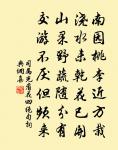 南園桃李近方栽
澆水未乾花已開
山果野蔬隨分有
交游不厭但頻來
司馬光看花四絕句